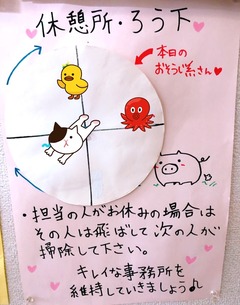 休憩所・ろう下
本日の
おそうじ係さん♥
・担当の人がお休みの場合は
その人は飛ばして次の人が
掃除して下さい。
キレイな事務所を
維持していきましょう♪